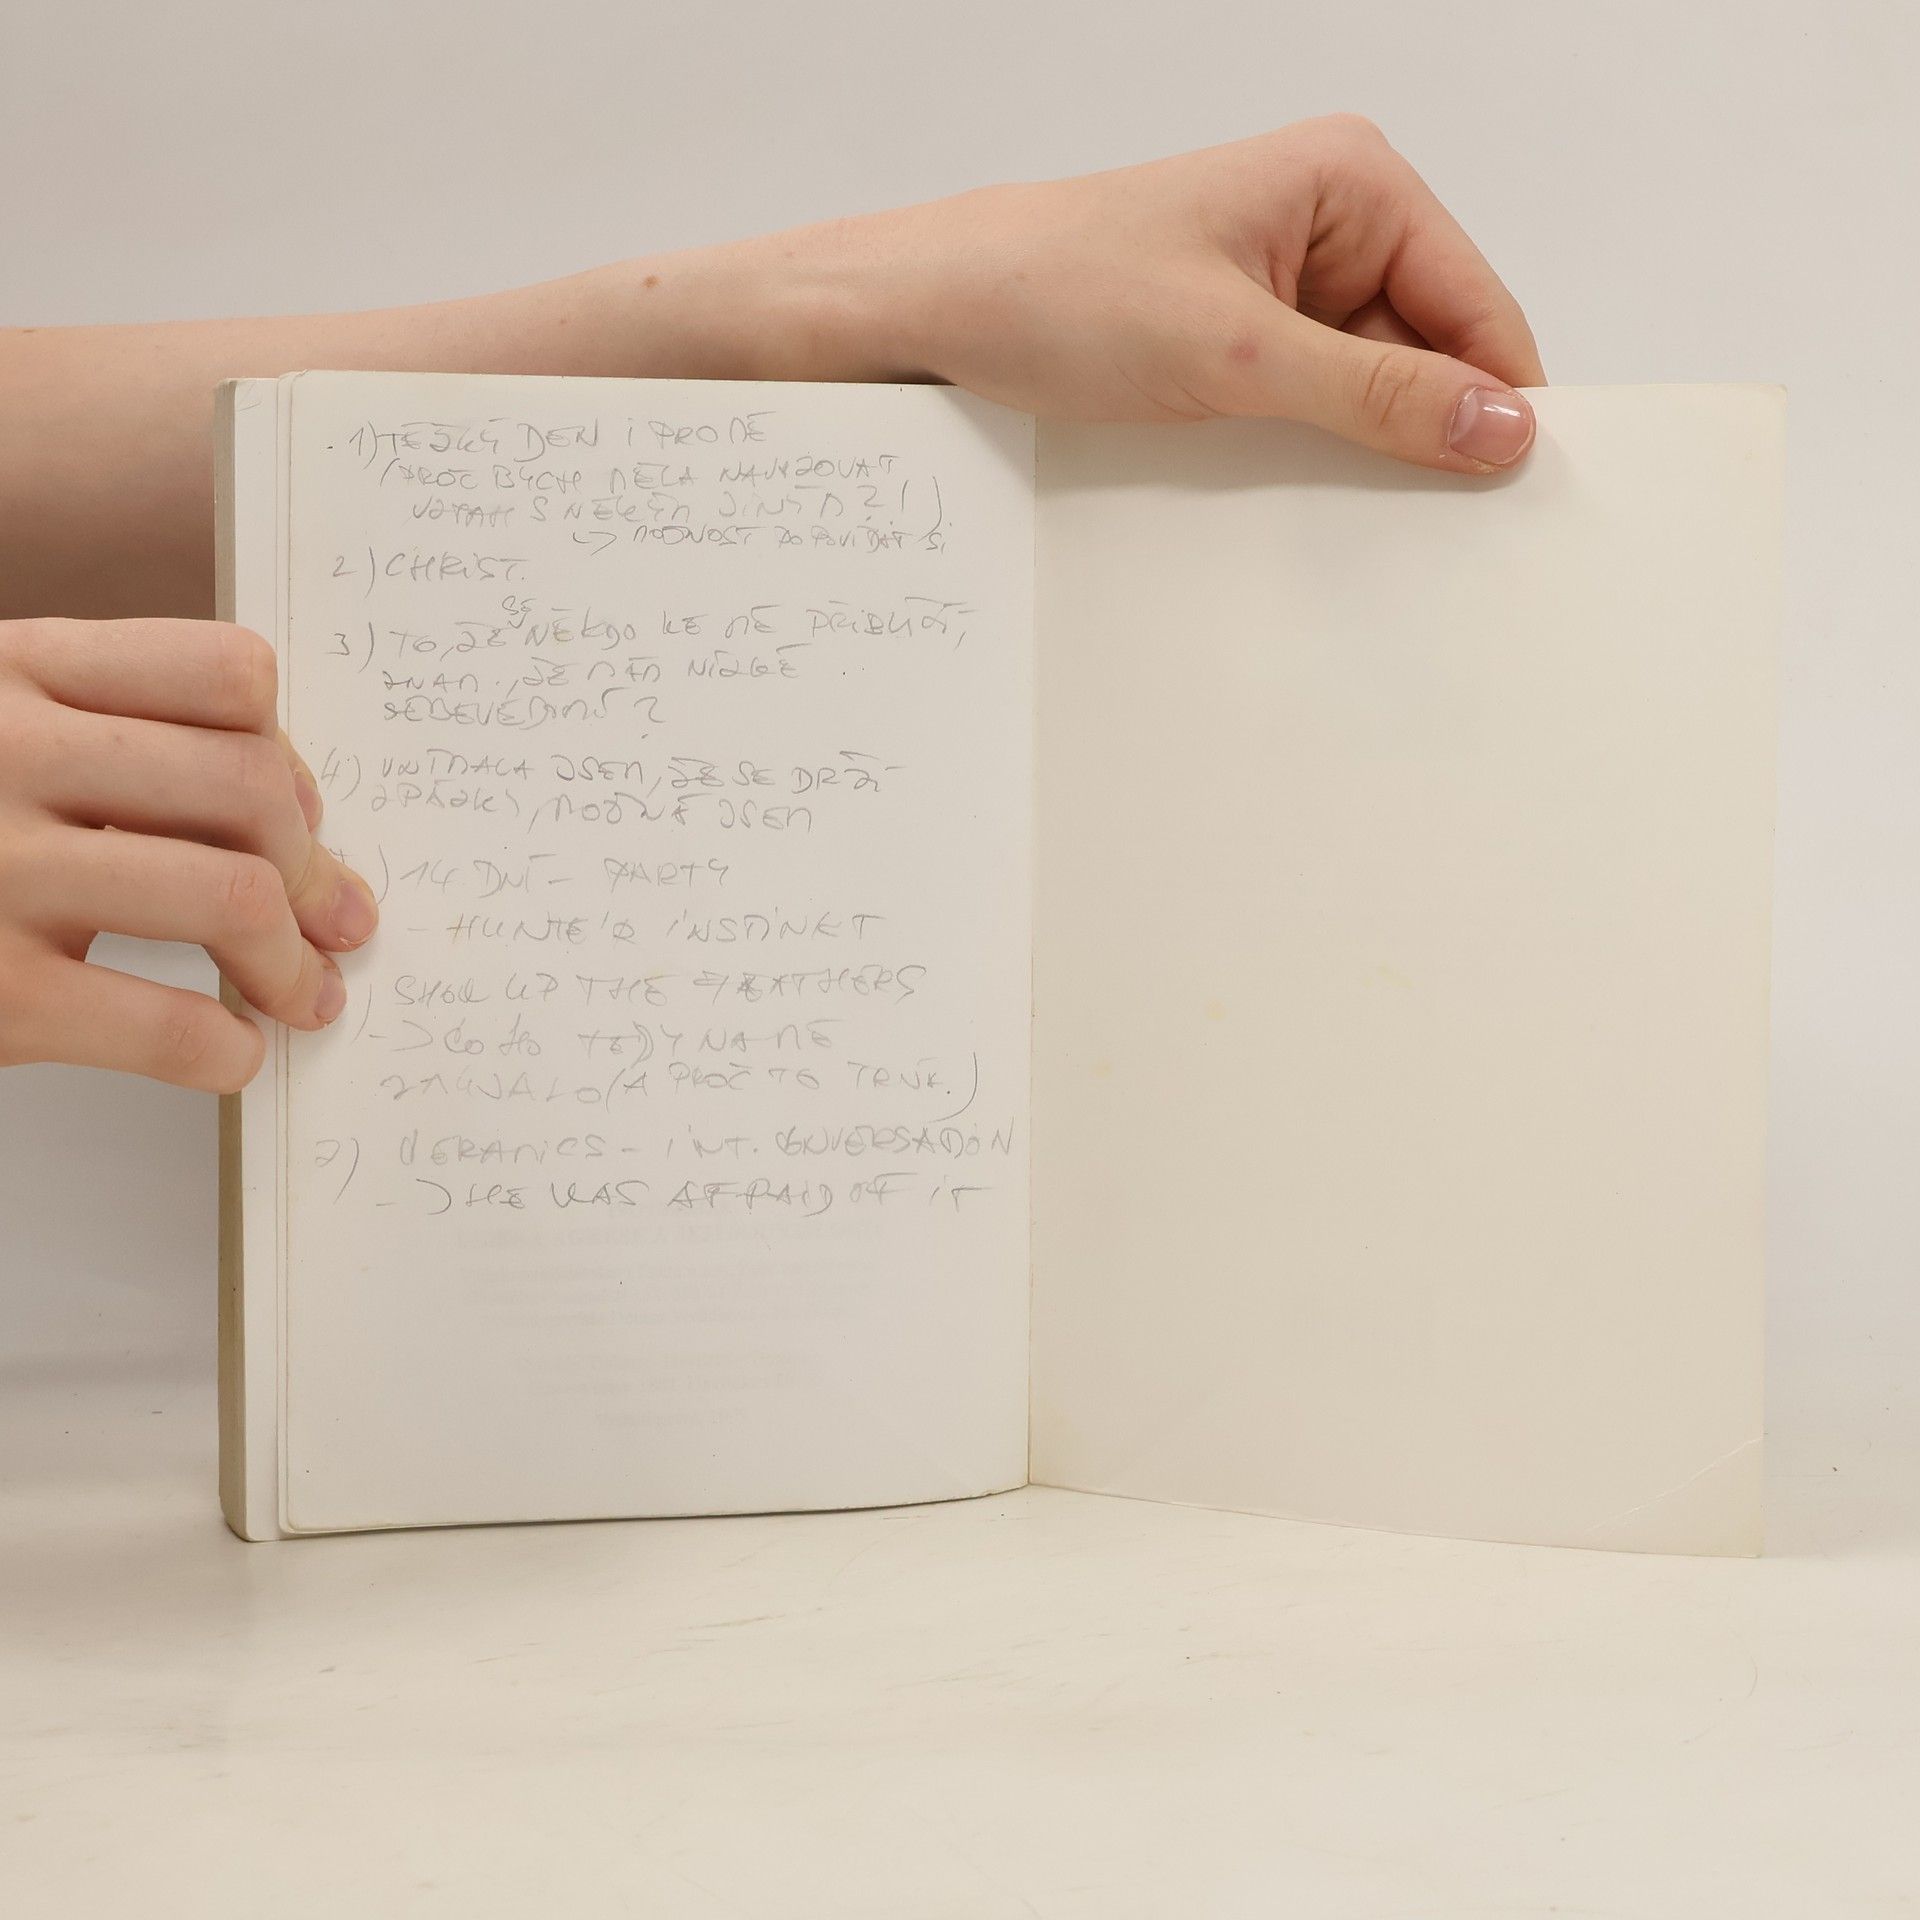 1) TĚŽKÝ DEN I PRO MĚ
(PROČ BYCH MĚLA NAVAZOVAT
VZTAH S NĚKÝM JINÝM?!)
↳ MOŽNOST POPOVÍDAT SI
2) CHRIST.
3) TO, ŽE SE NĚKDO KE MĚ PŘIBLÍŽÍ,
ZNAM., ŽE MÁM NÍZKÉ
SEBEVĚDOMÍ?
4) VNÍMALA JSEM, ŽE SE DRŽÍ
ZPÁTKY, MOŽNÁ JSEM
) 14 DNÍ - PARTY
- HUNTE'R INSTINKT
) SHOW UP THE FEATHERS
-> CO HO TEDY NA MĚ
ZAUJALO (A PROČ TO TRVÁ.)
) CERAMICS - INT. CONVERSATION
-> HE WAS AFRAID OF IT